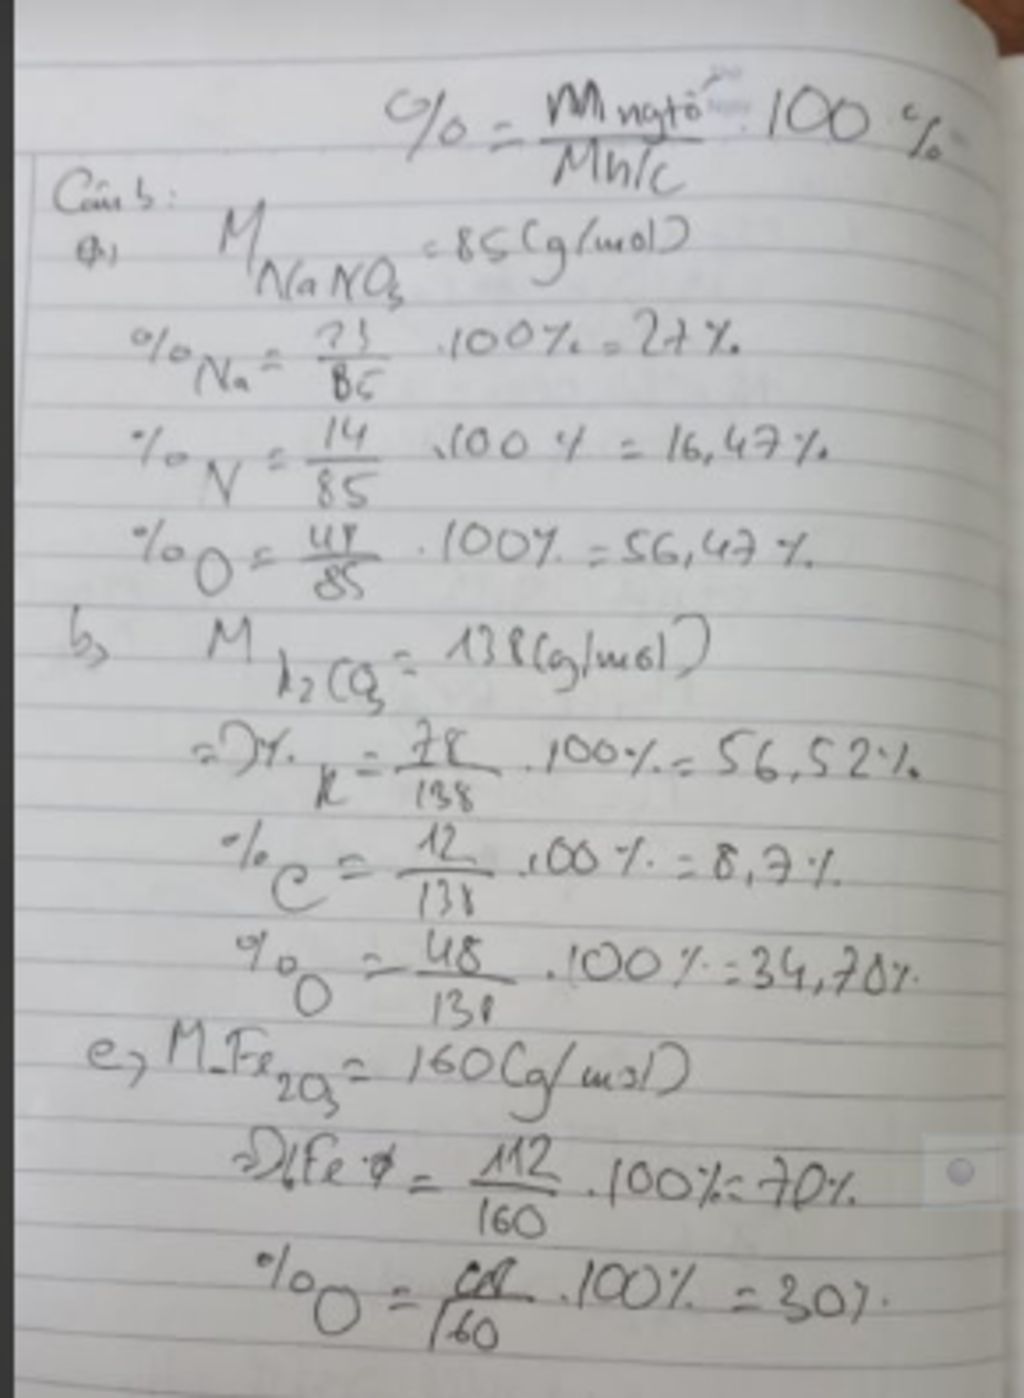 % = M ngtố / M h/c . 100 %
Câu 5:
a,) M NaNO3 = 85 (g/mol)
% Na = 23/85 . 100% = 27%
% N = 14/85 . 100% = 16,47%
% O = 48/85 . 100% = 56,47%
b, M K2CO3 = 138 (g/mol)
=> % K = 78/138 . 100% = 56,52%
% C = 12/138 . 100% = 8,7%
% O = 48/138 . 100% = 34,78%
c, M Fe2O3 = 160 (g/mol)
=> % Fe = 112/160 . 100% = 70%
% O = 48/160 . 100% = 30%